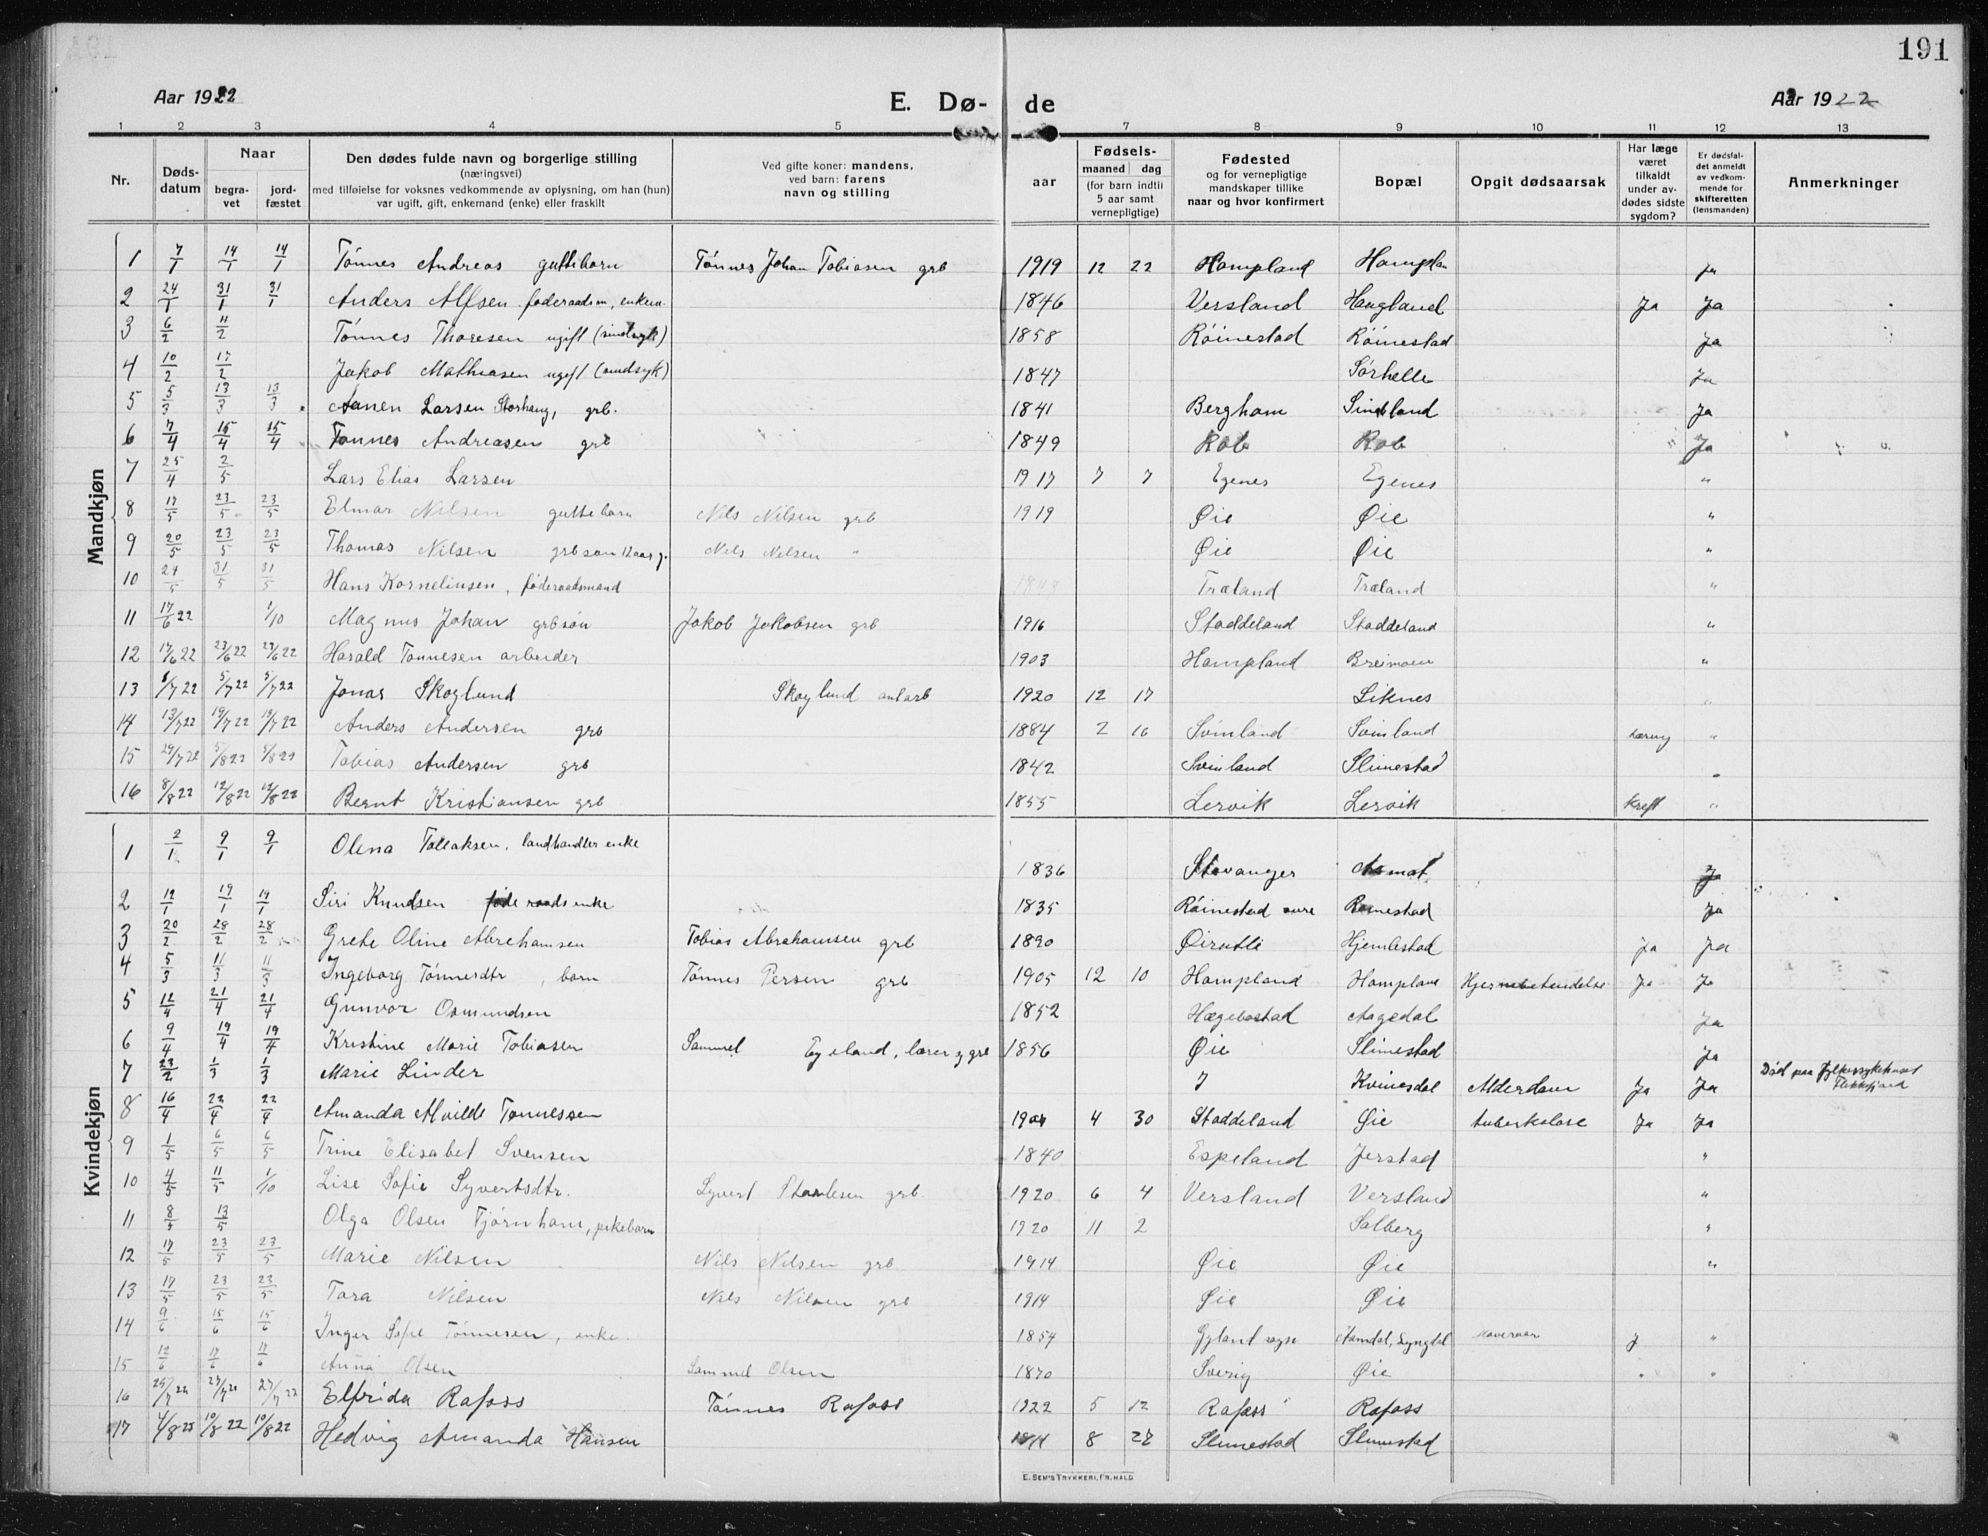 191
Aar 1922 E. Dø- de Aar 1922
1 2 3 4 5 7 8 9 10 11 12 13
Nr. Døds-datum Naar begra-vet jord-fæstet Den dødes fulde navn og borgerlige stilling (næringsvei) med tilføielse for voksnes vedkommende av oplysning, om han (hun) var ugift, gift, enkemand (enke) eller fraskilt Ved gifte koner: mandens, ved barn: farens navn og stilling aar Fødsels- maaned dag (for barn indtil 5 aar samt vernepligtige) Fødested og for vernepligtige mandskaper tillike naar og hvor konfirmert Bopæl Opgit dødsaarsak Har læge været tilkaldt under av-dødes sidste sygdom? Er dødsfal-det anmeldt av vedkom-mende for skifteretten (lensmanden) Anmerkninger
Mandkjøn
1 7/1 14/1 14/1 Tønnes Andreas guttebarn Tønnes Johan Tobiasen grb 1919 12 22 Hompland ja
2 24/1 31/1 31/1 Anders Alfsen føderaadsm, enkem. 1846 Versland Haugland Ja Ja
3 6/2 11/2 Tønnes Thoresen ugift (sindsyk) 1858 Röinestad Röinestad Ja
4 10/2 17/2 Jakob Mathiasen ugift (sindsyk) 1847 Sørhelle Ja
5 5/3 13/3 13/3 Aanen Larsen Storhaug, grb. 1841 Bergham Sindland Ja
6 7/4 15/4 15/4 Tønnes Andreasen grb 1849 Rob Rob Ja
7 25/4 2/5 Lars Elias Larsen 1917 7 7 Egenes Egenes "
8 17/5 23/5 23/5 Elmar Nilsen guttebarn Nils Nilsen grb 1919 Øie Øie "
9 20/5 23/5 23/5 Thomas Nilsen grbsøn 12 aar g. Nils Nilsen " Øie Øie "
10 24/5 31/5 31/5 Hans Kornelinsen, føderaadsmand Træland Træland "
11 17/6 22 1/10 Magnus Johan grbsøn Jakob Jakobsen grb 1916 Staddeland Staddeland "
12 17/6 22 23/6 22 23/6 22 Harald Tønnesen arbeider 1903 Hompland Breimoen "
13 5/7 22 5/7 22 Jonas Skoglund Skoglund anl arb 1920 12 17 Liknes "
14 13/7 22 19/7 22 19/7 22 Anders Andersen grb 1884 2 16 Svinland Svinland "
15 5/8 22 Tobias Andersen grb 1842 Svinland Slimestad "
16 8/8 22 12/8 22 12/8 22 Bernt Kristiansen grb 1855 Lervik Lervik kreft "
Kvindekjøn
1 2/1 9/1 9/1 Olena Tollaksen, landhandler enke 1836 Stavanger Aamot Ja
2 12/1 19/1 19/1 Siri Knudsen føderaadsenke 1835 Röinestad Roinestad Ja
3 20/2 28/2 28/2 Grete Oline Abrehamsen Tobias Abrahamsen grb 1890 Hjemlestad ja ja
4 5/3 11/3 11/3 Ingeborg Tønnesdtr, barn Tønnes Persen grb 1905 12 10 Hompland Hompland Hjernebetendelse Ja Ja
5 12/4 21/4 21/4 Gunvor Osmundsen 1852 Hægebostad Aagedal Ja
6 9/4 19/4 19/4 Kristine Marie Tobiasen Sammel Egeland, lærer og grb 1856 Øie Slimestad Ja
7 23/2 1/3 1/3 Marie Linder Kvinesdal Alderdom Ja Ja Död paa fylkessykehuset Flekkefjord
8 16/4 22/4 22/4 Amanda Alvilde Tønnessen 4 30 Staddeland Øie tuberkulose Ja Ja
9 1/5 6/5 6/5 Trine Elisabet Svensen 1840 Espeland Jerstad "
10 4/5 11/5 1/10 Lise Sofie Syvertsdtr. Syvert grb 1920 6 4 Versland Versland "
11 8/5 13/5 Olga Olsen Tjørnhom, pikebarn 1920 11 2 Solberg "
12 17/5 23/5 23/5 Marie Nilsen Nils Nilsen grb 1914 Øie Øie "
13 17/5 23/5 23/5 Tora Nilsen Nils Nilsen grb 1914 Øie Øie
14 9/6 15/6 15/6 Inger Sofie Tönnesen, enke. 1854 Gyland sogn Aamdal, Lyngdal j "
15 12/6 17/6 17/6 Anna Olsen Sammel Olsen 1870 Sverig Øie "
16 27/7 22 Elfrida Rafoss Tønnes Rafoss 1922 5 12 Rafoss Rafoss
17 10/8 22 10/8 22 Hedvig Amanda Hansen 8 Slimestad Slimestad
E. SEM'S TRYKKERI, FR. HALD